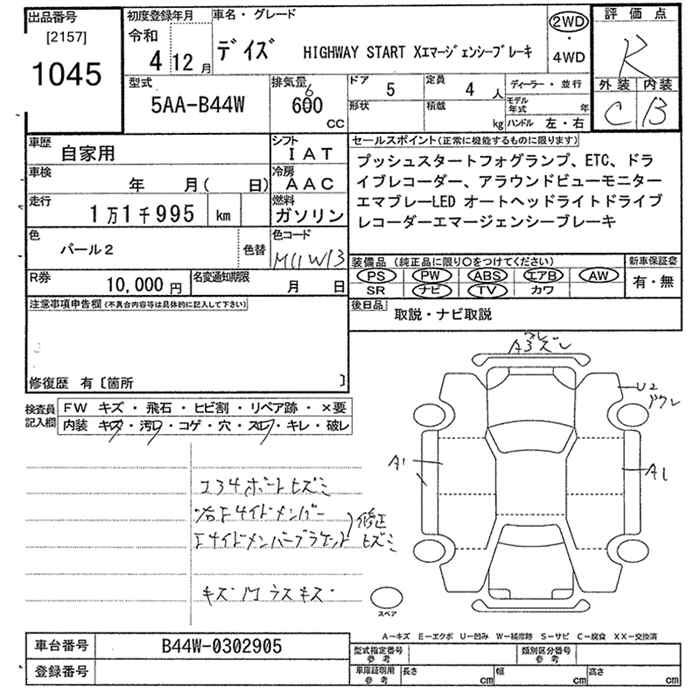 出品番号
[2157]
1045
初度登録年月
令和
4年12月
車名・グレード
デイズ HIGHWAY START Xエマージェンシーブレーキ
2WD
・
4WD
評価点
R
外装 内装
C B
型式
5AA-B44W
排気量
6
600
CC
ドア
5
定員
4 人
形状
積載
kg
ディーラー・並行
モデル年式 年
ハンドル 左・右
車歴
自家用
シフト
IAT
車検
年 月( 日)
冷房
AAC
走行
1万1千995 km
燃料
ガソリン
色
パール2
色替
色コード
R券
10,000円
名変通知期限
月 日
セールスポイント(正常に機能するものに限ります)
プッシュスタートフォグランプ、ETC、ドラ
イブレコーダー、アラウンドビューモニター
エマブレーLED オートヘッドライトドライブ
レコーダーエマージェンシーブレーキ
装備品(純正品に限り○をつけてください)
PS PW ABS エアB AW
SR ナビ TV カワ
新車保証書
有・無
後日品
取説・ナビ取説
注意事項申告欄(不具合内容等は具体的に記入して下さい)
修復歴 有〔箇所 〕
検査員
記入欄
FW キズ・飛石・ヒビ割・リペア跡・×要
内装 キズ・汚レ・コゲ・穴・スレ・キレ・破レ
A3 ズレ
U2
A1
A1
コアサポートヒズミ
修正
ヒズミ
スペア
A-キズ E-エクボ U-凹み W-補修跡 S-サビ C-腐食 XX-交換済
車台番号
B44W-0302905
登録番号
型式指定番号
参考
類別区分番号
参考
車庫証明用
参考
長さ cm
幅 cm
高さ cm